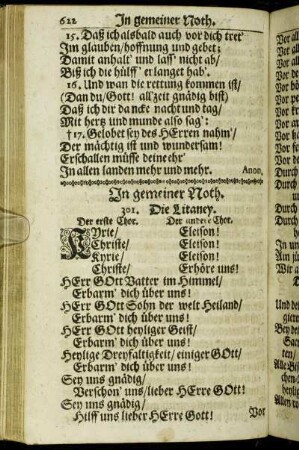 622 In gemeiner Noth.
15. Daß ich alsbald auch vor dich tret'
Im glauben/hoffnung und gebet;
Damit anhalt' und lass' nicht ab/
Biß ich die hülff' erlanget hab'.
16. Und wan die rettung kommen ist/
(Dan du/Gott! all'zeit gnädig bist)
Daß ich dir dancke nacht und tag/
Mit hertz und munde also sag':
†17. Gelobet sey des HErren nahm'/
Der mächtig ist und wundersam!
Erschallen müsse deine ehr'
In allen landen mehr und mehr. Anon.
In gemeiner Noth.
301. Die Litaney.
Der erste Chor. Der andere Chor.
KYrie/ Eleison!
Christe/ Eleison!
Kyrie/ Eleison!
Christe/ Erhöre uns!
HErr GOtt Vatter im Himmel/
Erbarm' dich über uns!
HErr GOtt Sohn der welt Heiland/
Erbarm' dich über uns!
HErr GOtt heyliger Geist/
Erbarm' dich über uns!
Heylige Dreyfaltigkeit/einiger GOtt/
Erbarm' dich über uns!
Sey uns gnädig/
Verschon' uns/lieber HErre GOtt!
Sey uns gnädig/
Hilff uns lieber HErre Gott!
Vor